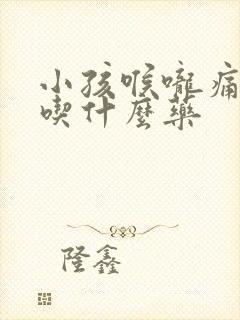 小孩喉嚨痛
喫什麼藥
隆鑫